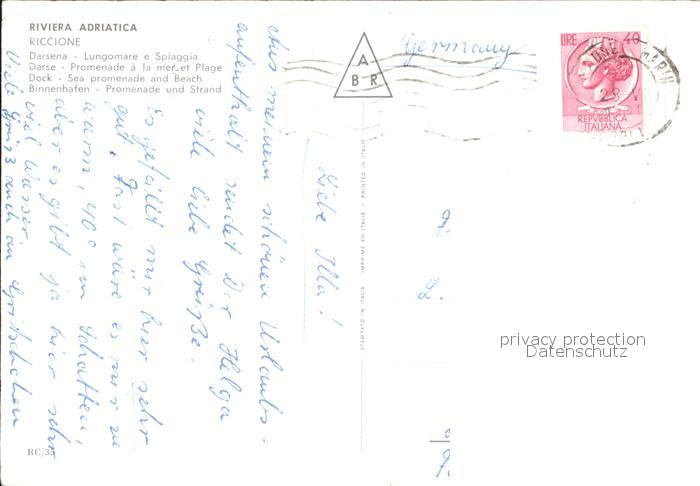 RIVIERA ADRIATICA
RICCIONE
Darsena - Lungomare e Spiaggia
Darse - Promenade à la mer et Plage
Dock - Sea promenade and Beach
Binnenhafen - Promenade und Strand
A
B R
Germany
LIRE 40
REPVBBLICA
ITALIANA
28
Liebe Illa!
Aus meinem schönen Urlaubs=
aufenthalt sendet Dir Helga
viele liebe Grüße.
Es gefällt mir hier sehr
gut. Fast wäre es mir zu
warm, 40° im Schatten,
aber es gibt ja hier sehr
viel Wasser.
Viele Grüße auch an
STAMPATO IN ITALIA - IMPRIMÉ EN ITALIE - PRINTED IN ITALY
RC/35
privacy protection
Datenschutz